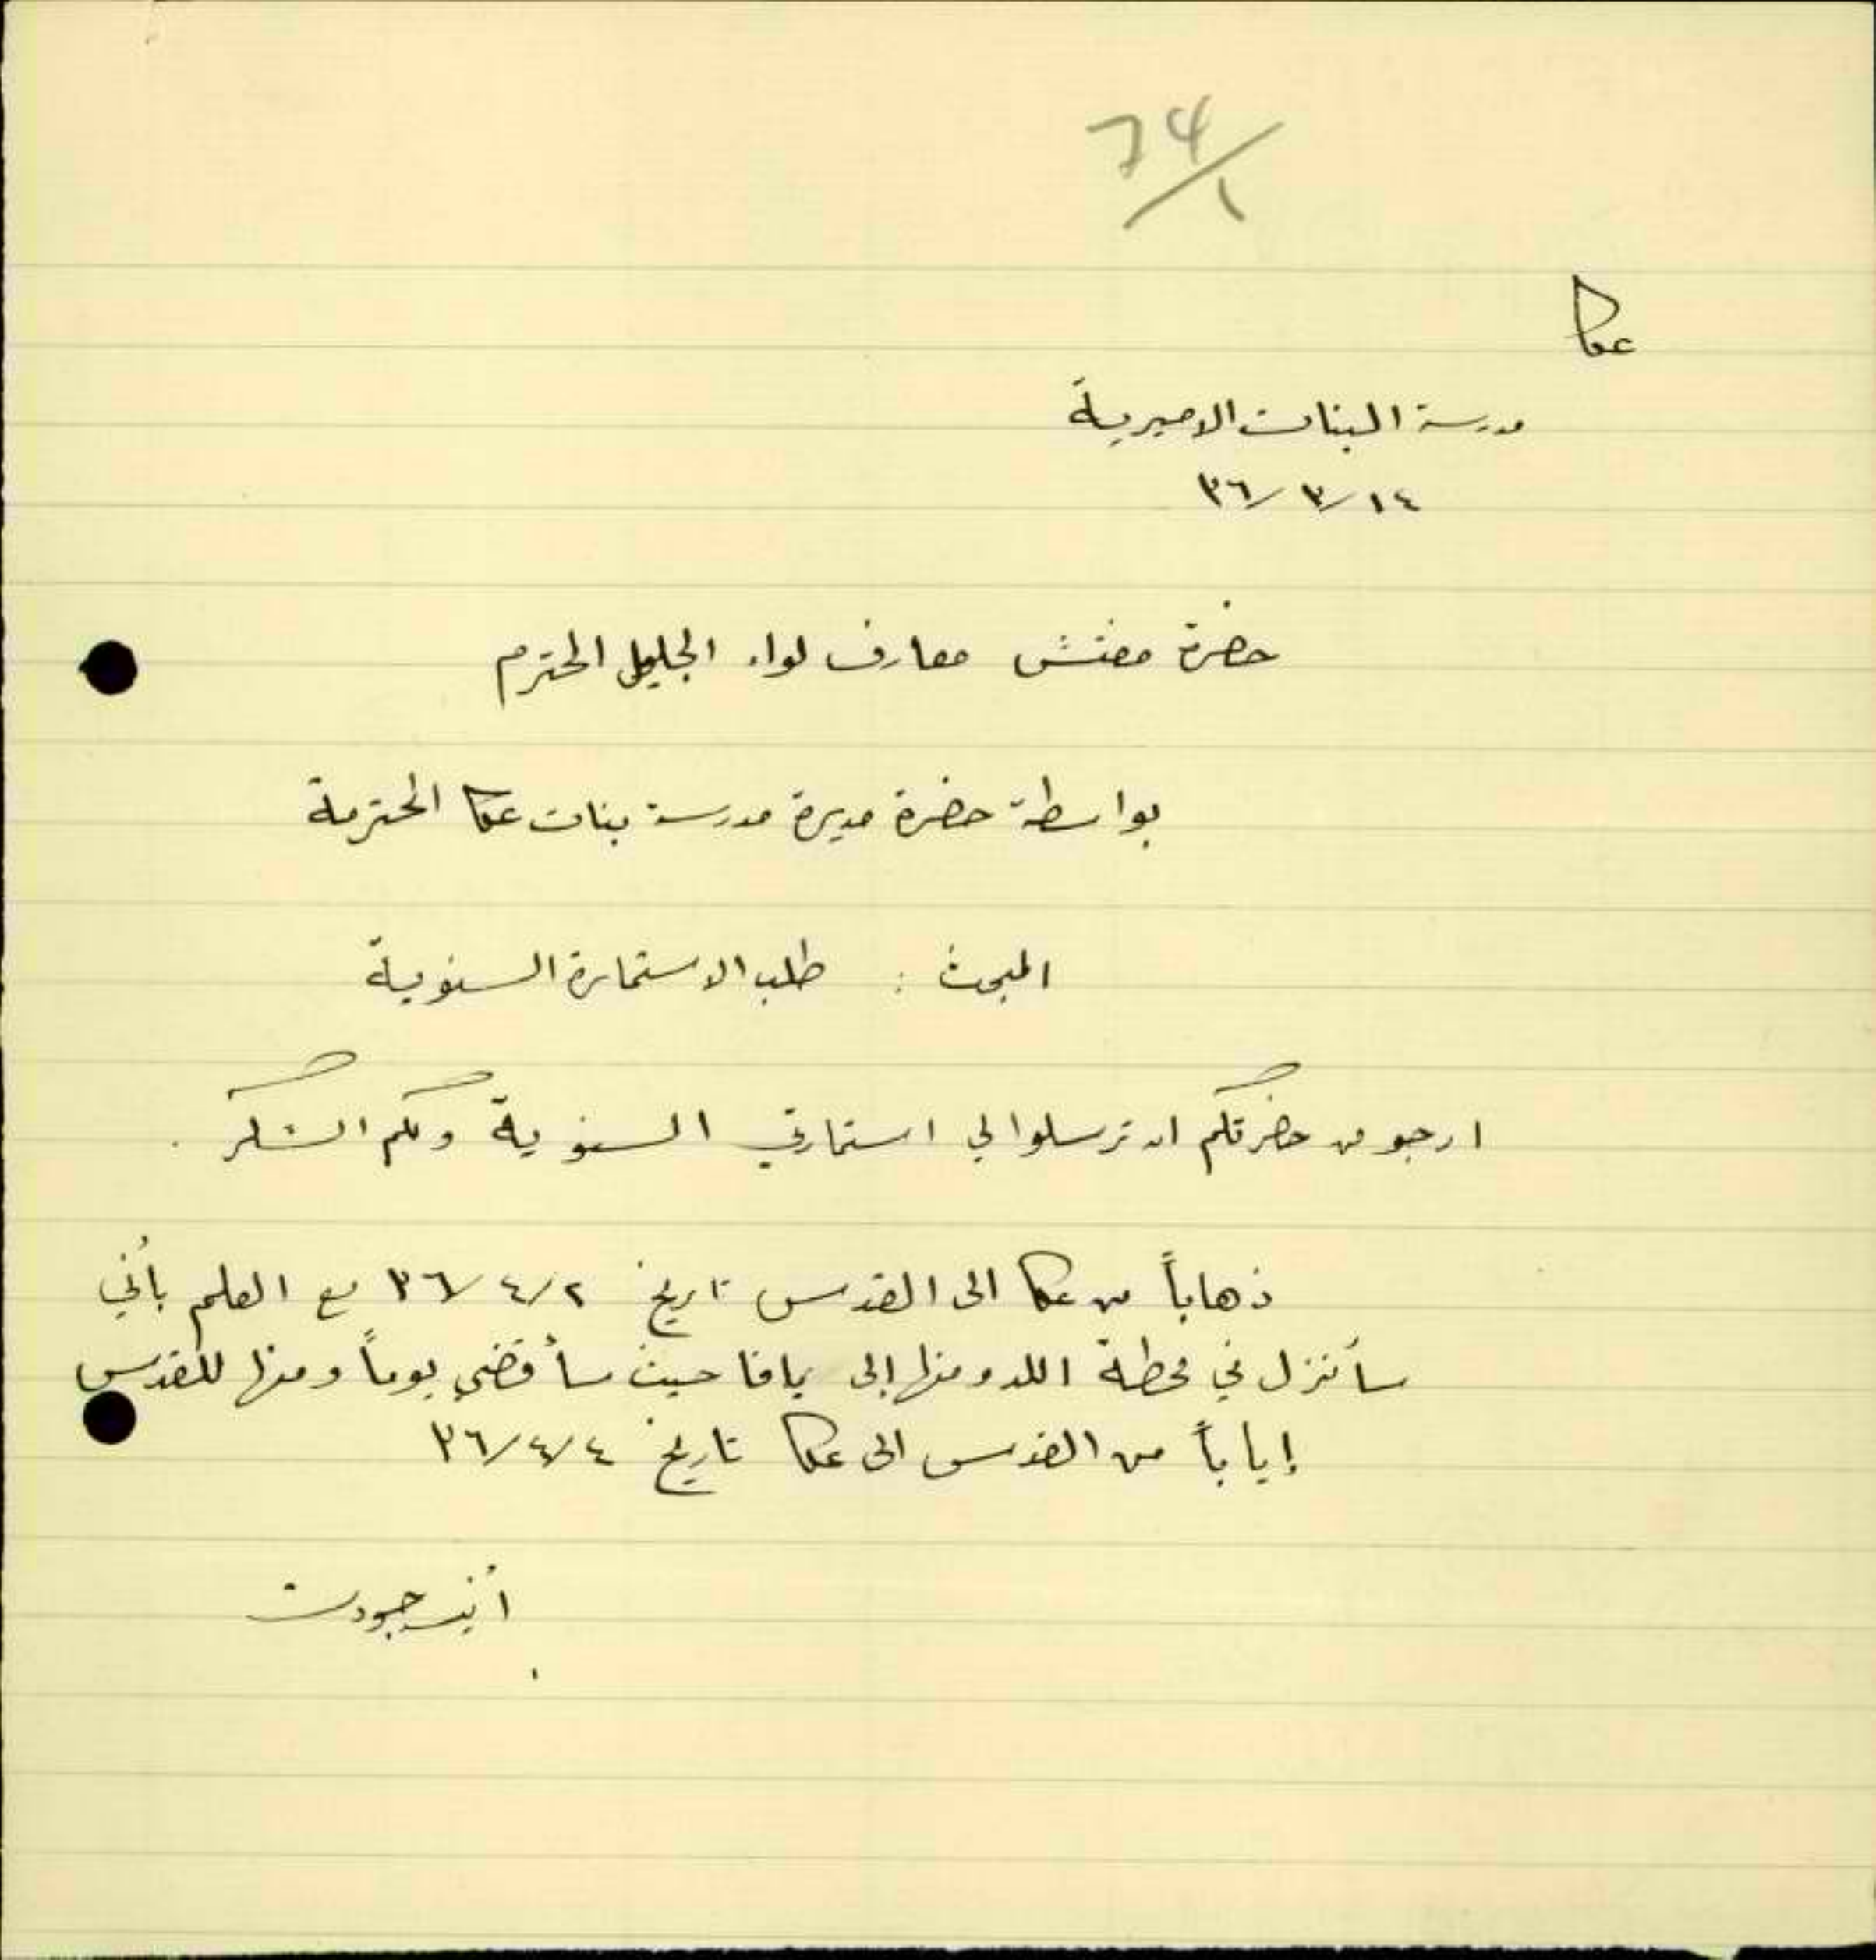 74/1
عكا
مدرسة البنات الاميرية
١٤/٣/٣٦
حضرة مفتش معارف لواء الجليل المحترم
بواسطة حضرة مديرة مدرسة بنات عكا المحترمة
المبحث : طلب الاستمارة السنوية
ارجو من حضرتكم ان ترسلوا لي استمارتي السنوية ولكم الشكر .
ذهاباً من عكا الى القدس تاريخ ٢/٤/٣٦ مع العلم بأني
سأنزل في محطة اللد ومنها إلى يافا حيث سأقضي يوماً ومنها للقدس
إياباً من القدس الى عكا تاريخ ٤/٤/٣٦
أنيسه جودت